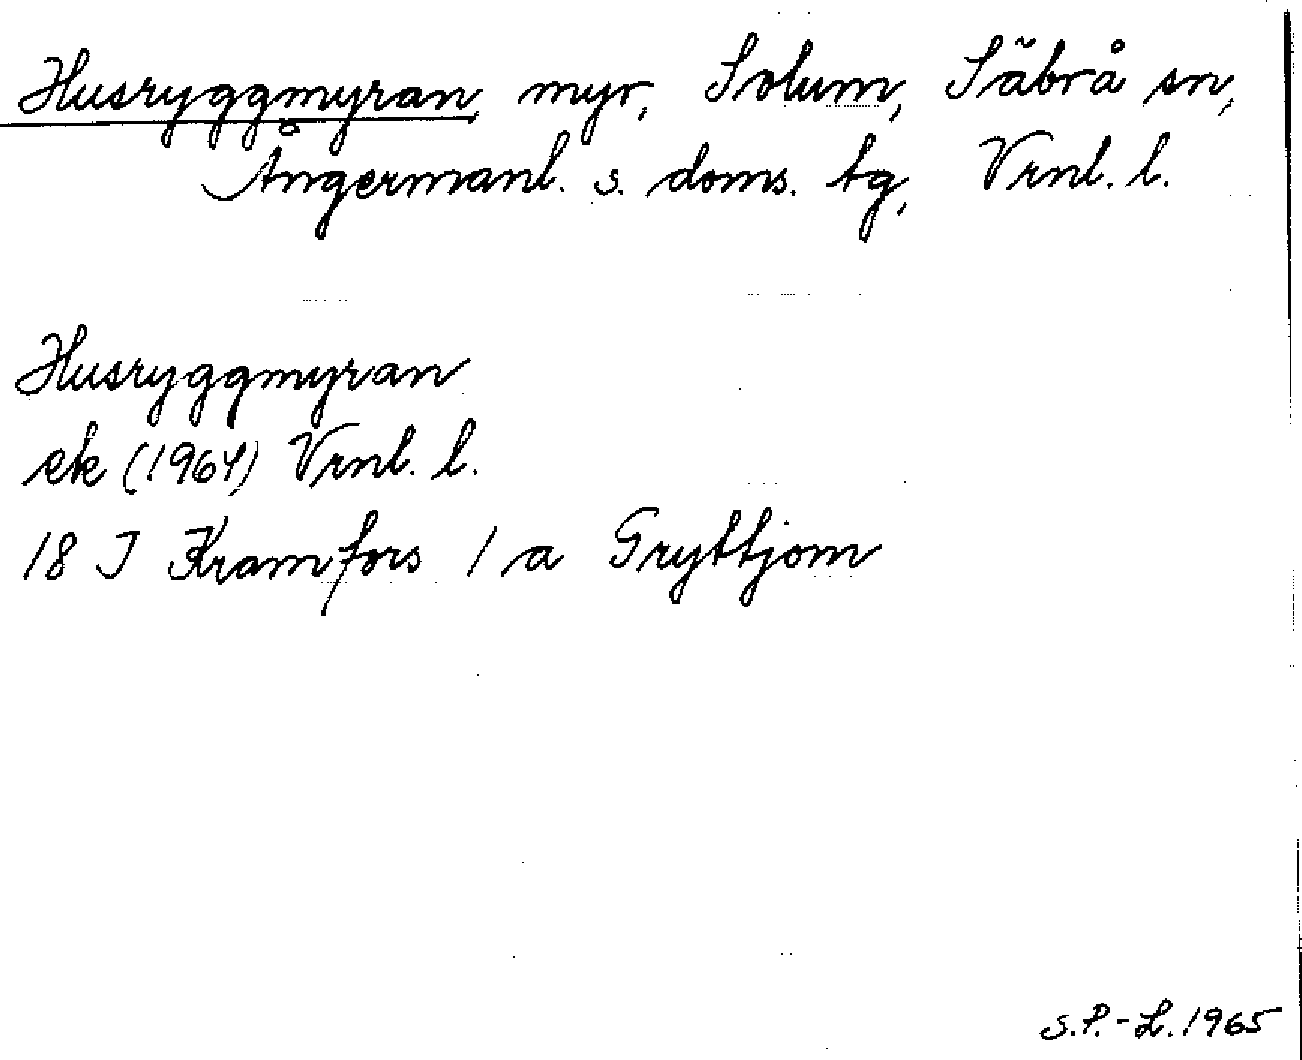 Husryggmyran myr, Solum, Säbrå sn,
Ångermanl. s. doms. tg, Vrnl. l.
Husryggmyran
ek (1964) Vrnl. l.
18 I Kramfors 1 a Gryttjom
S.P.-L. 1965